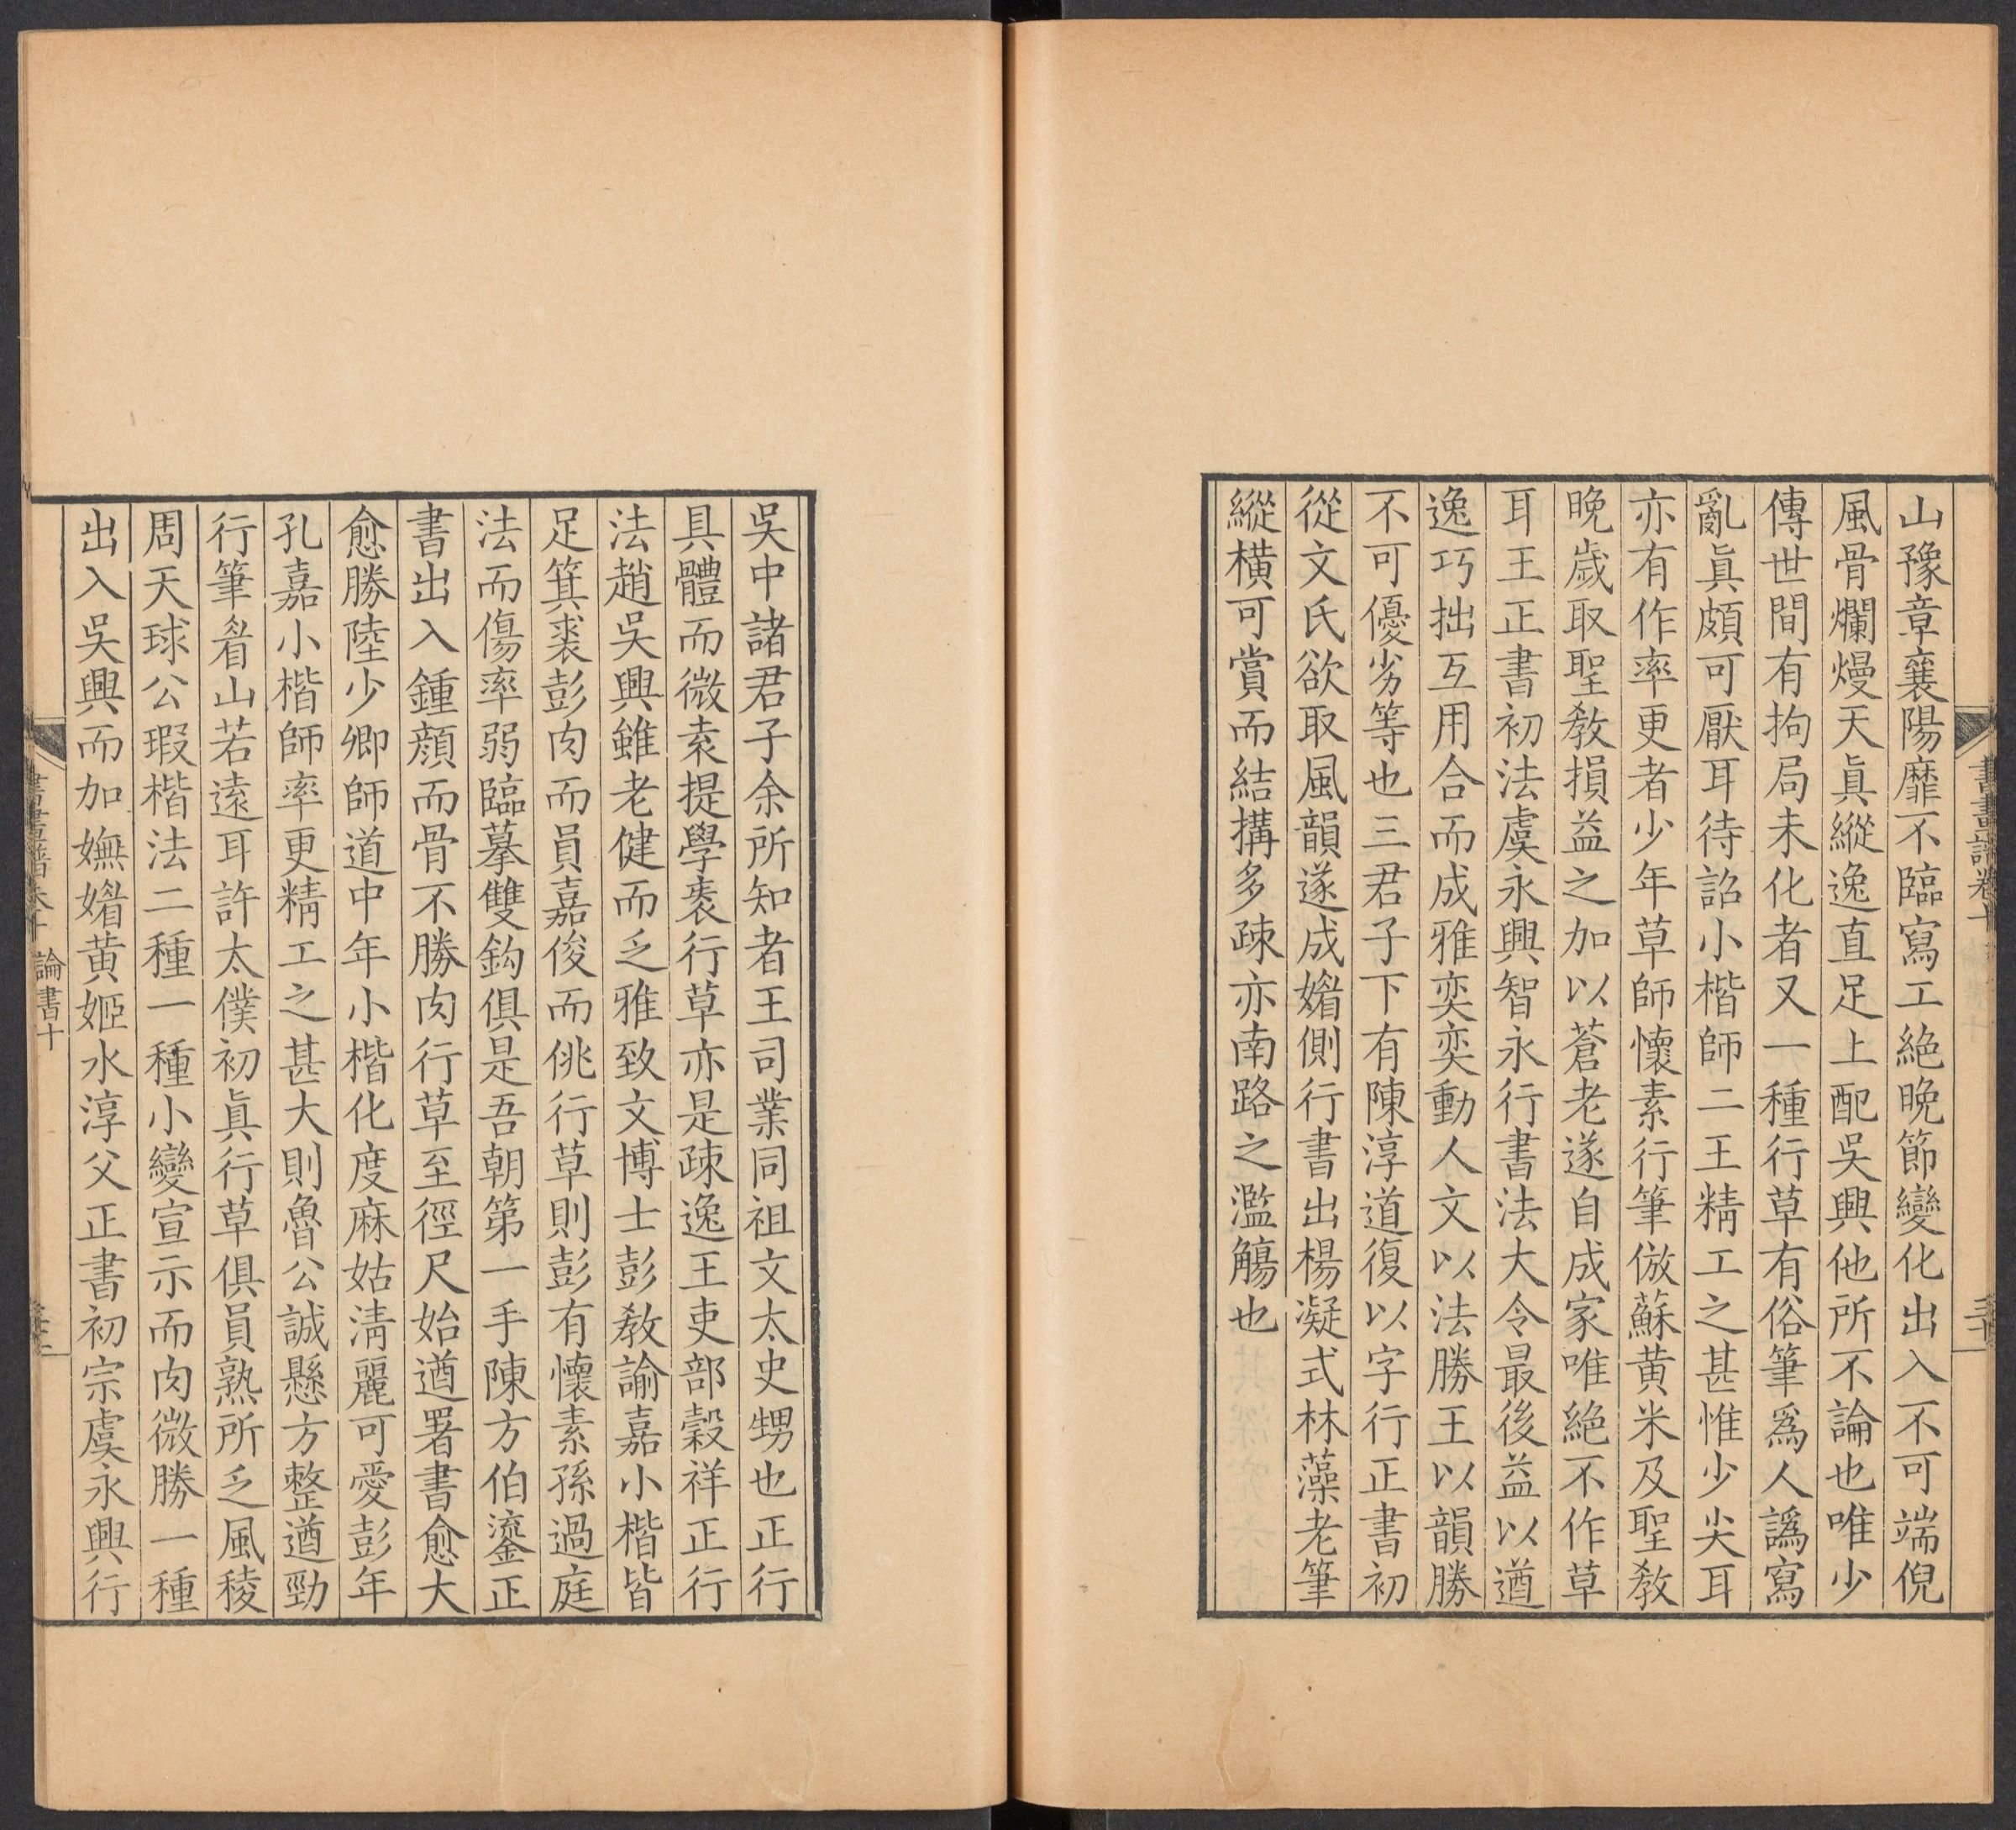 書畫譜卷十
山豫章襄陽靡不臨寫工絕晚節變化出入不可端倪
風骨爛熳天眞縱逸直足上配吳興他所不論也唯少
傳世間有拘局未化者又一種行草有俗筆爲人譌寫
亂眞頗可厭耳待詔小楷師二王精工之甚惟少尖耳
亦有作率更者少年草師懷素行筆倣蘇黄米及聖敎
晚歲取聖敎損益之加以蒼老遂自成家唯絕不作草
耳王正書初法虞永興智永行書法大令最後益以遒
逸巧拙互用合而成雅奕奕動人文以法勝王以韻勝
不可優劣等也三君子下有陳淳道復以字行正書初
從文氏欲取風韻遂成媚側行書出楊凝式林藻老筆
縱横可賞而結搆多疎亦南路之濫觴也
吳中諸君子余所知者王司業同祖文太史甥也正行
具體而微袁提學袠行草亦是疎逸王吏部穀祥正行
法趙吳興雖老健而乏雅致文博士彭敎諭嘉小楷皆
足箕裘彭肉而員嘉俊而佻行草則彭有懷素孫過庭
法而傷率弱臨摹雙鈎俱是吾朝第一手陳方伯鎏正
書出入鍾顔而骨不勝肉行草至徑尺始遒署書愈大
愈勝陸少卿師道中年小楷化度麻姑淸麗可愛彭年
孔嘉小楷師率更精工之甚大則魯公誠懸方整遒勁
行筆眉山若遠耳許太僕初眞行草俱員熟所乏風稜
周天球公瑕楷法二種一種小變宣示而肉微勝一種
出入吳興而加嫵媚黄姬水淳父正書初宗虞永興行
書畫譜卷十 論書十